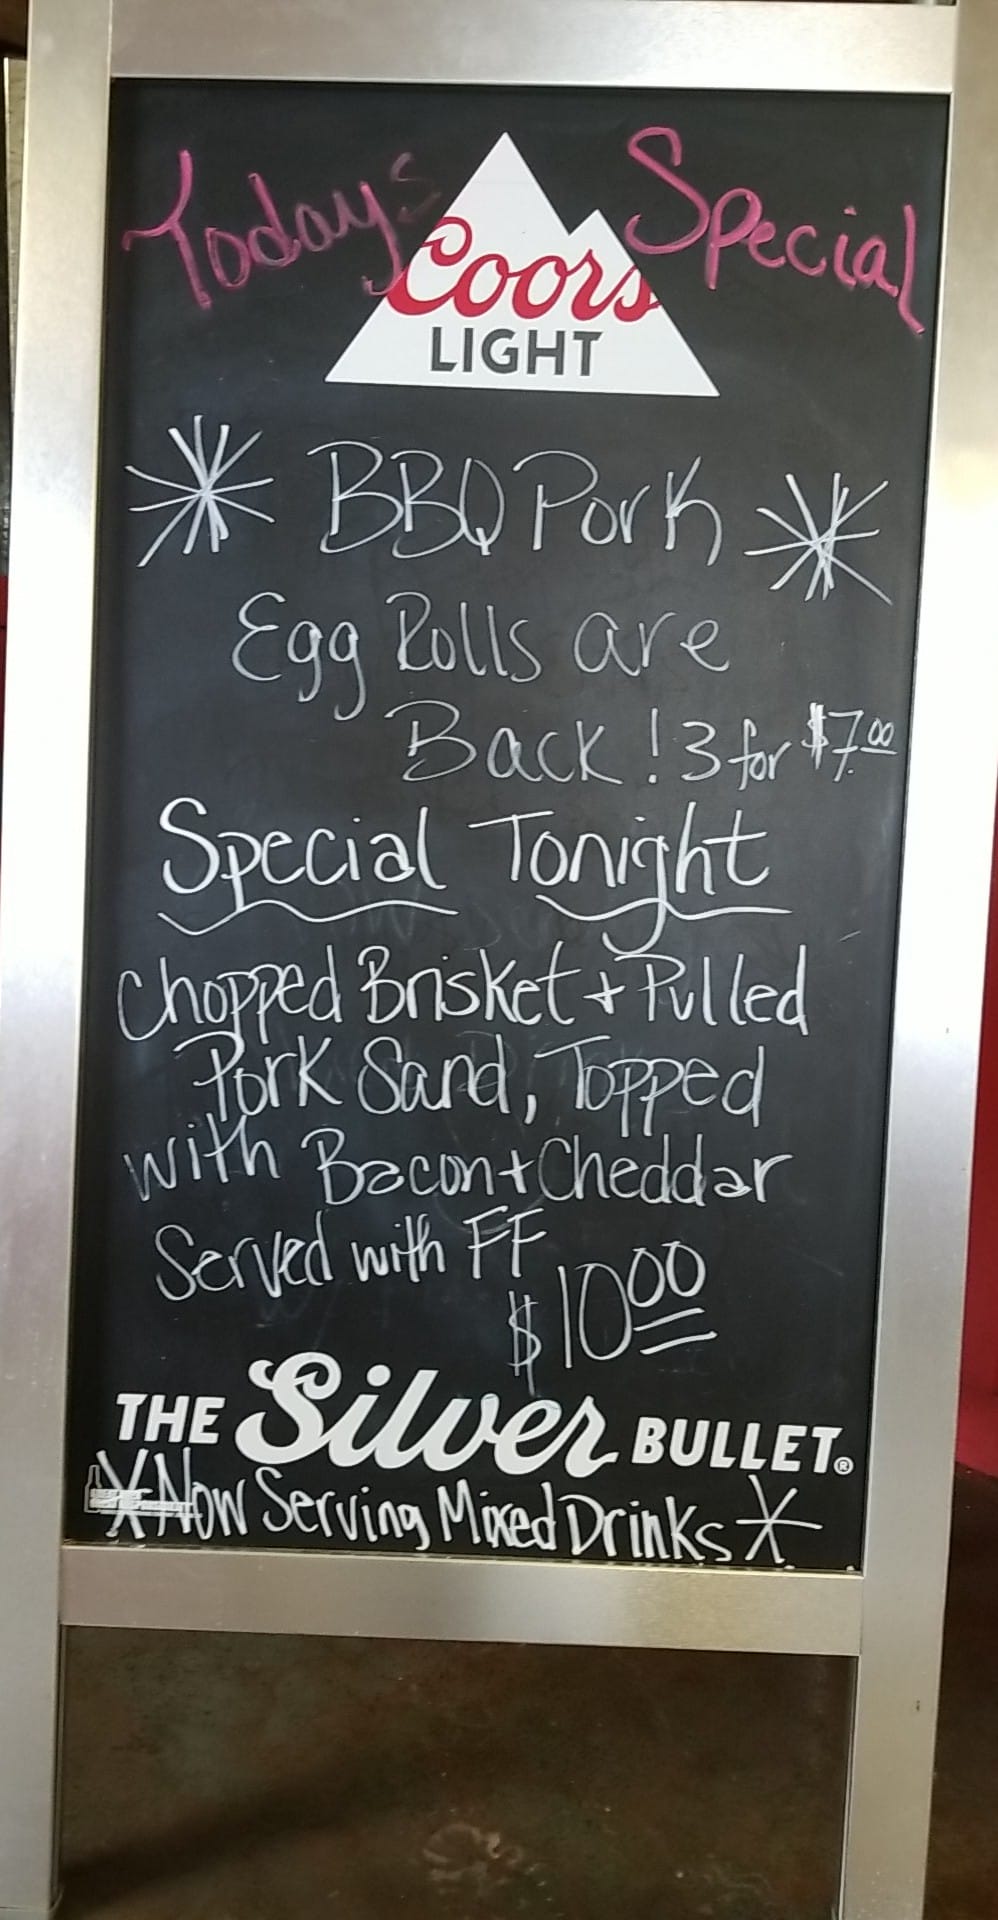 Todays Special
Coors
LIGHT
BBQ Pork
Egg Rolls are
Back! 3 for $7.00
Special Tonight
Chopped Brisket + Pulled
Pork Sand, Topped
with Bacon + Cheddar
Served with FF
$10.00
THE Silver BULLET®
Now Serving Mixed Drinks